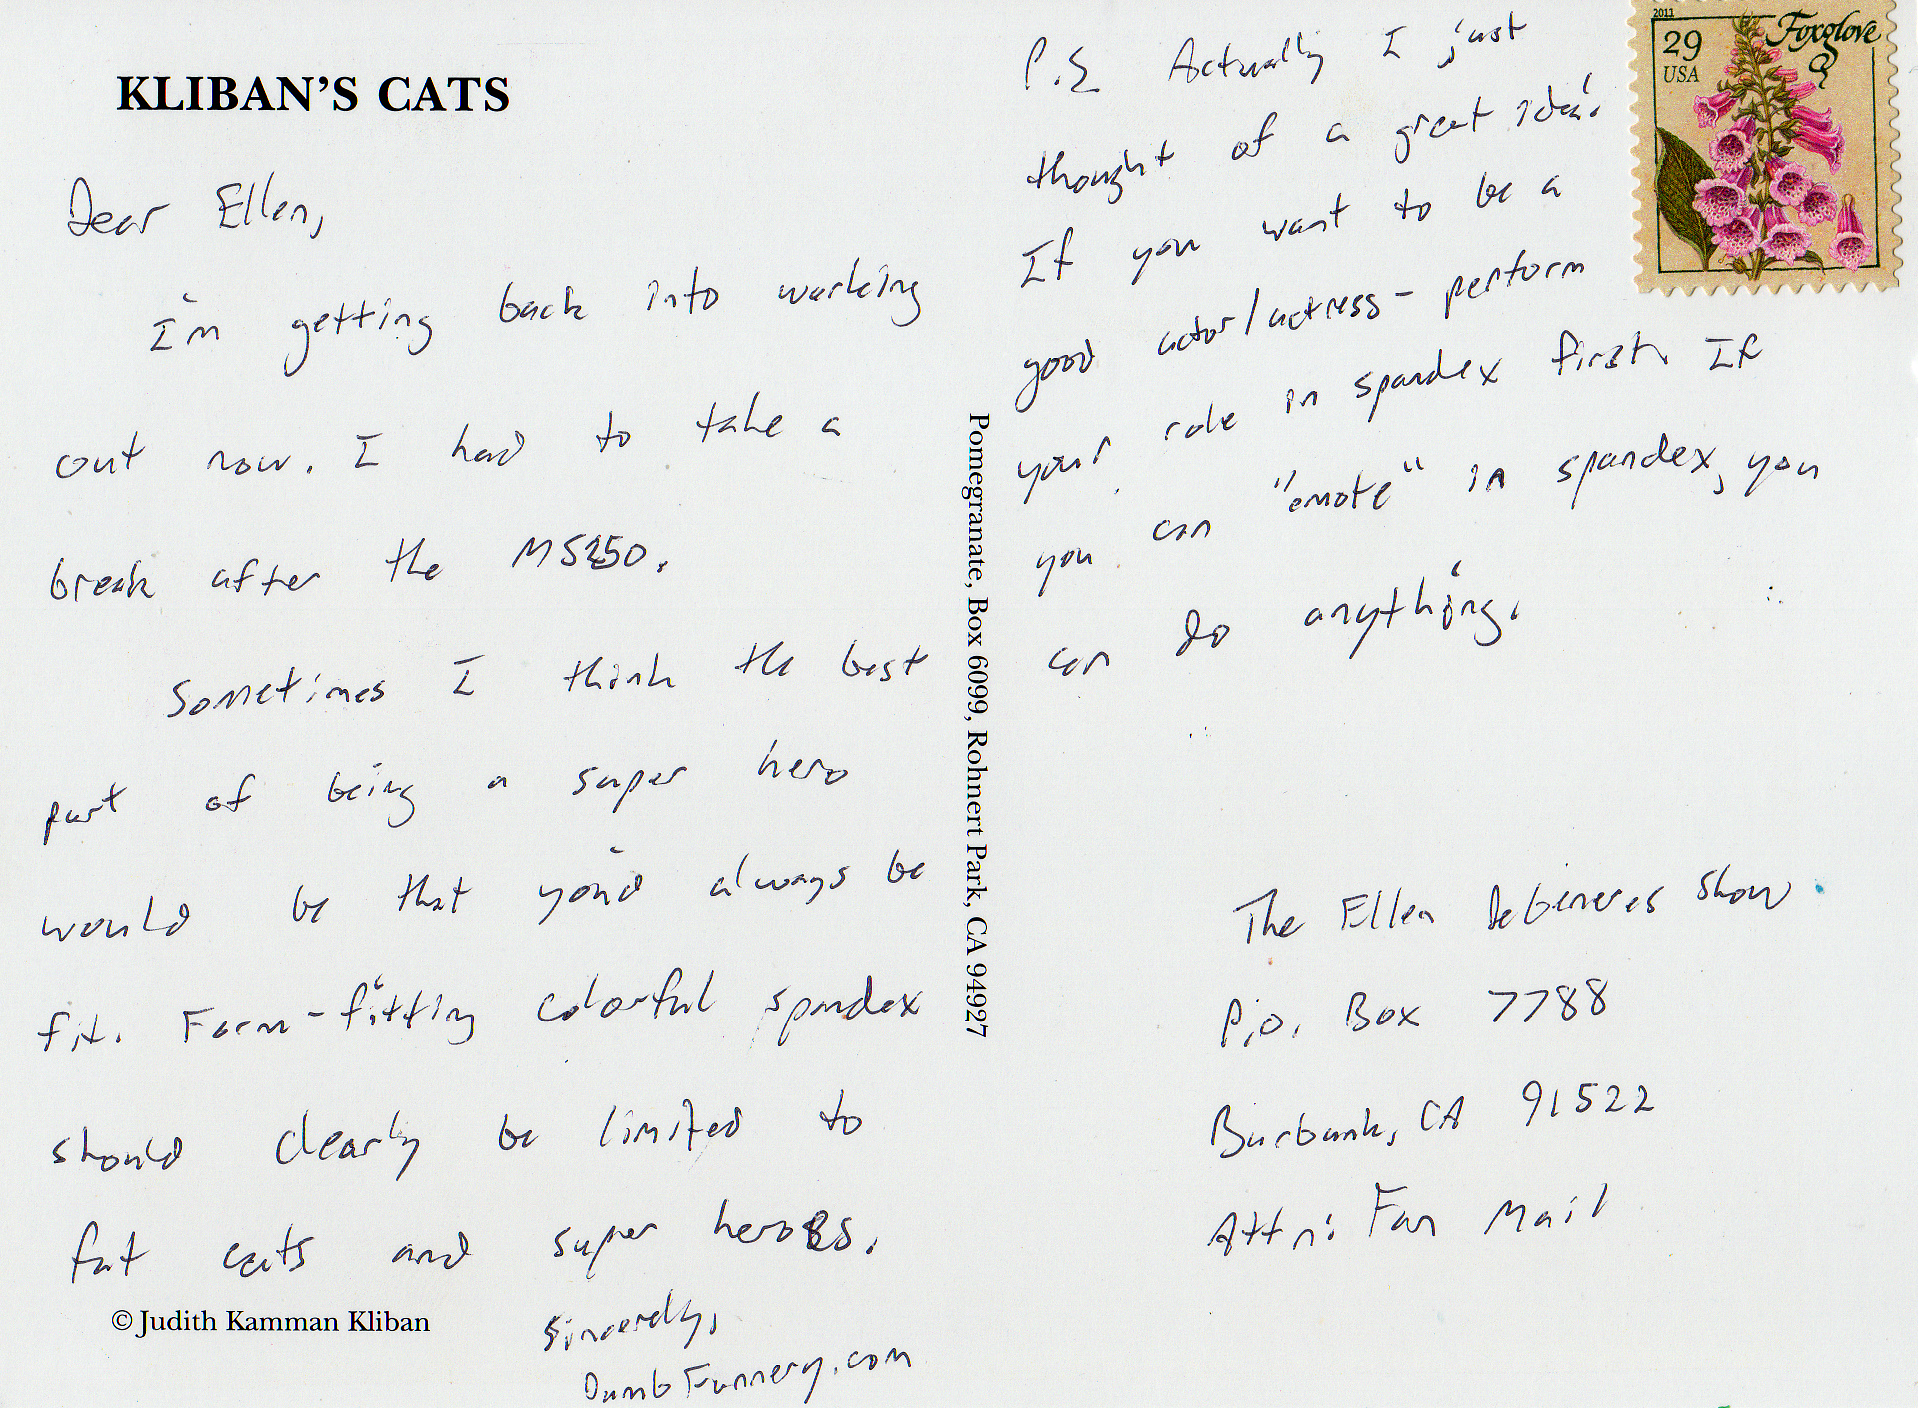 KLIBAN'S CATS
Dear Ellen,
I'm getting back into working
out now. I had to take a
break after the MS150.
Sometimes I think the best
part of being a super hero
would be that you'd always be
fit. Form-fitting colorful spandex
should clearly be limited to
fat cats and super heroes.
Sincerely,
DumbFunnery.com
© Judith Kamman Kliban
Pomegranate, Box 6099, Rohnert Park, CA 94927
P.S Actually I just
thought of a great idea.
If you want to be a
good actor/actress - perform
your role in spandex first. If
you can "emote" in spandex, you
can do anything.
2011
Foxglove
29
USA
The Ellen DeGeneres Show
P.O. Box 7788
Burbank, CA 91522
Attn: Fan Mail